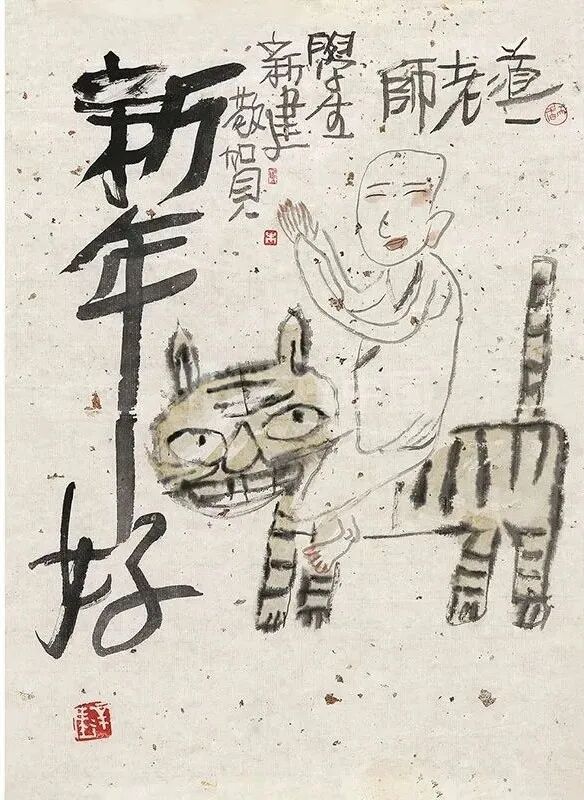 道一老師
學生
新建
敬賀
新年好